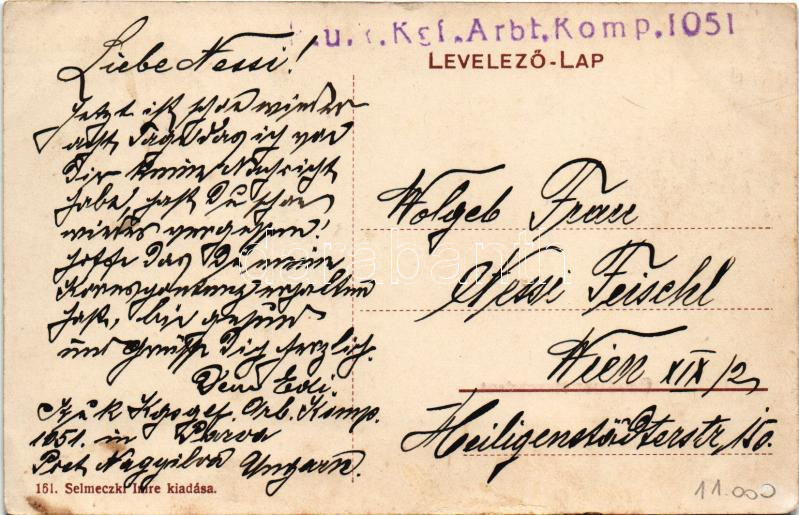 K.u.k. Kgf. Arbt. Komp. 1051
LEVELEZŐ-LAP
Liebe Nessi!
Jetzt ist schon wieder
acht Tage das ich von
Dir keine Nachricht
habe, hast Du schon
wieder vergessen!
Hoffe das Du meine
Korespontenz erhalten
hast, bin gesund
und grüsse Dich herzlich.
Dein Edi
K Kgsgef. Arb. Komp.
1051. in
Post Nagyilva Ungarn.
Wolgeb Frau
Nessi Feischl
Wien XIX/2
Heiligenstädterstr 150.
161. Selmeczki Imre kiadása.
11.000
darabanth